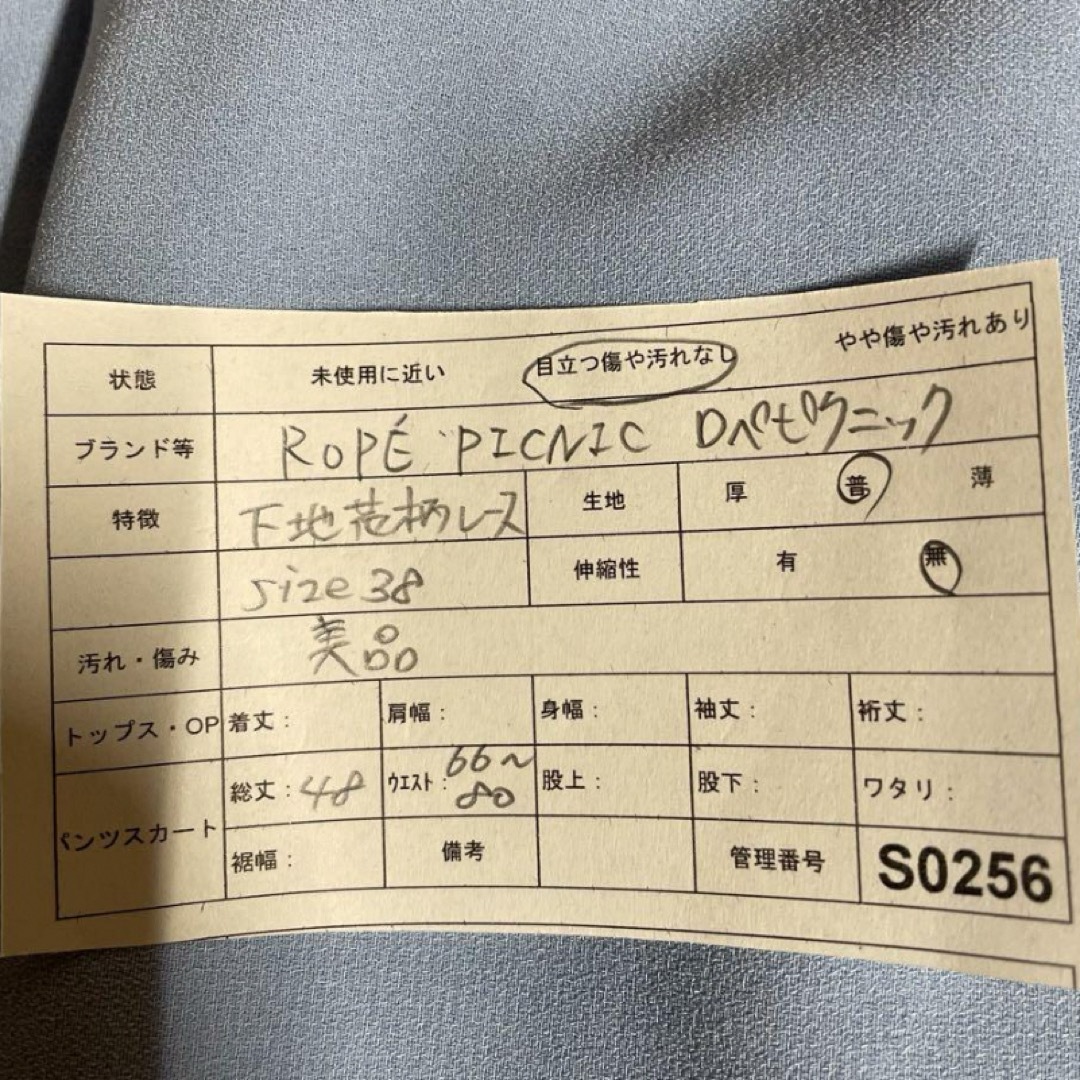 状態 未使用に近い 目立つ傷や汚れなし やや傷や汚れあり
ブランド等 ROPÉ PICNIC ロペピクニック
特徴 下地花柄レース 生地 厚 普 薄
size 38 伸縮性 有 無
汚れ・傷み 美品
トップス・OP 着丈: 肩幅: 身幅: 袖丈: 裄丈:
パンツスカート 総丈:48 ウエスト:66~80 股上: 股下: ワタリ:
裾幅: 備考 管理番号 S0256